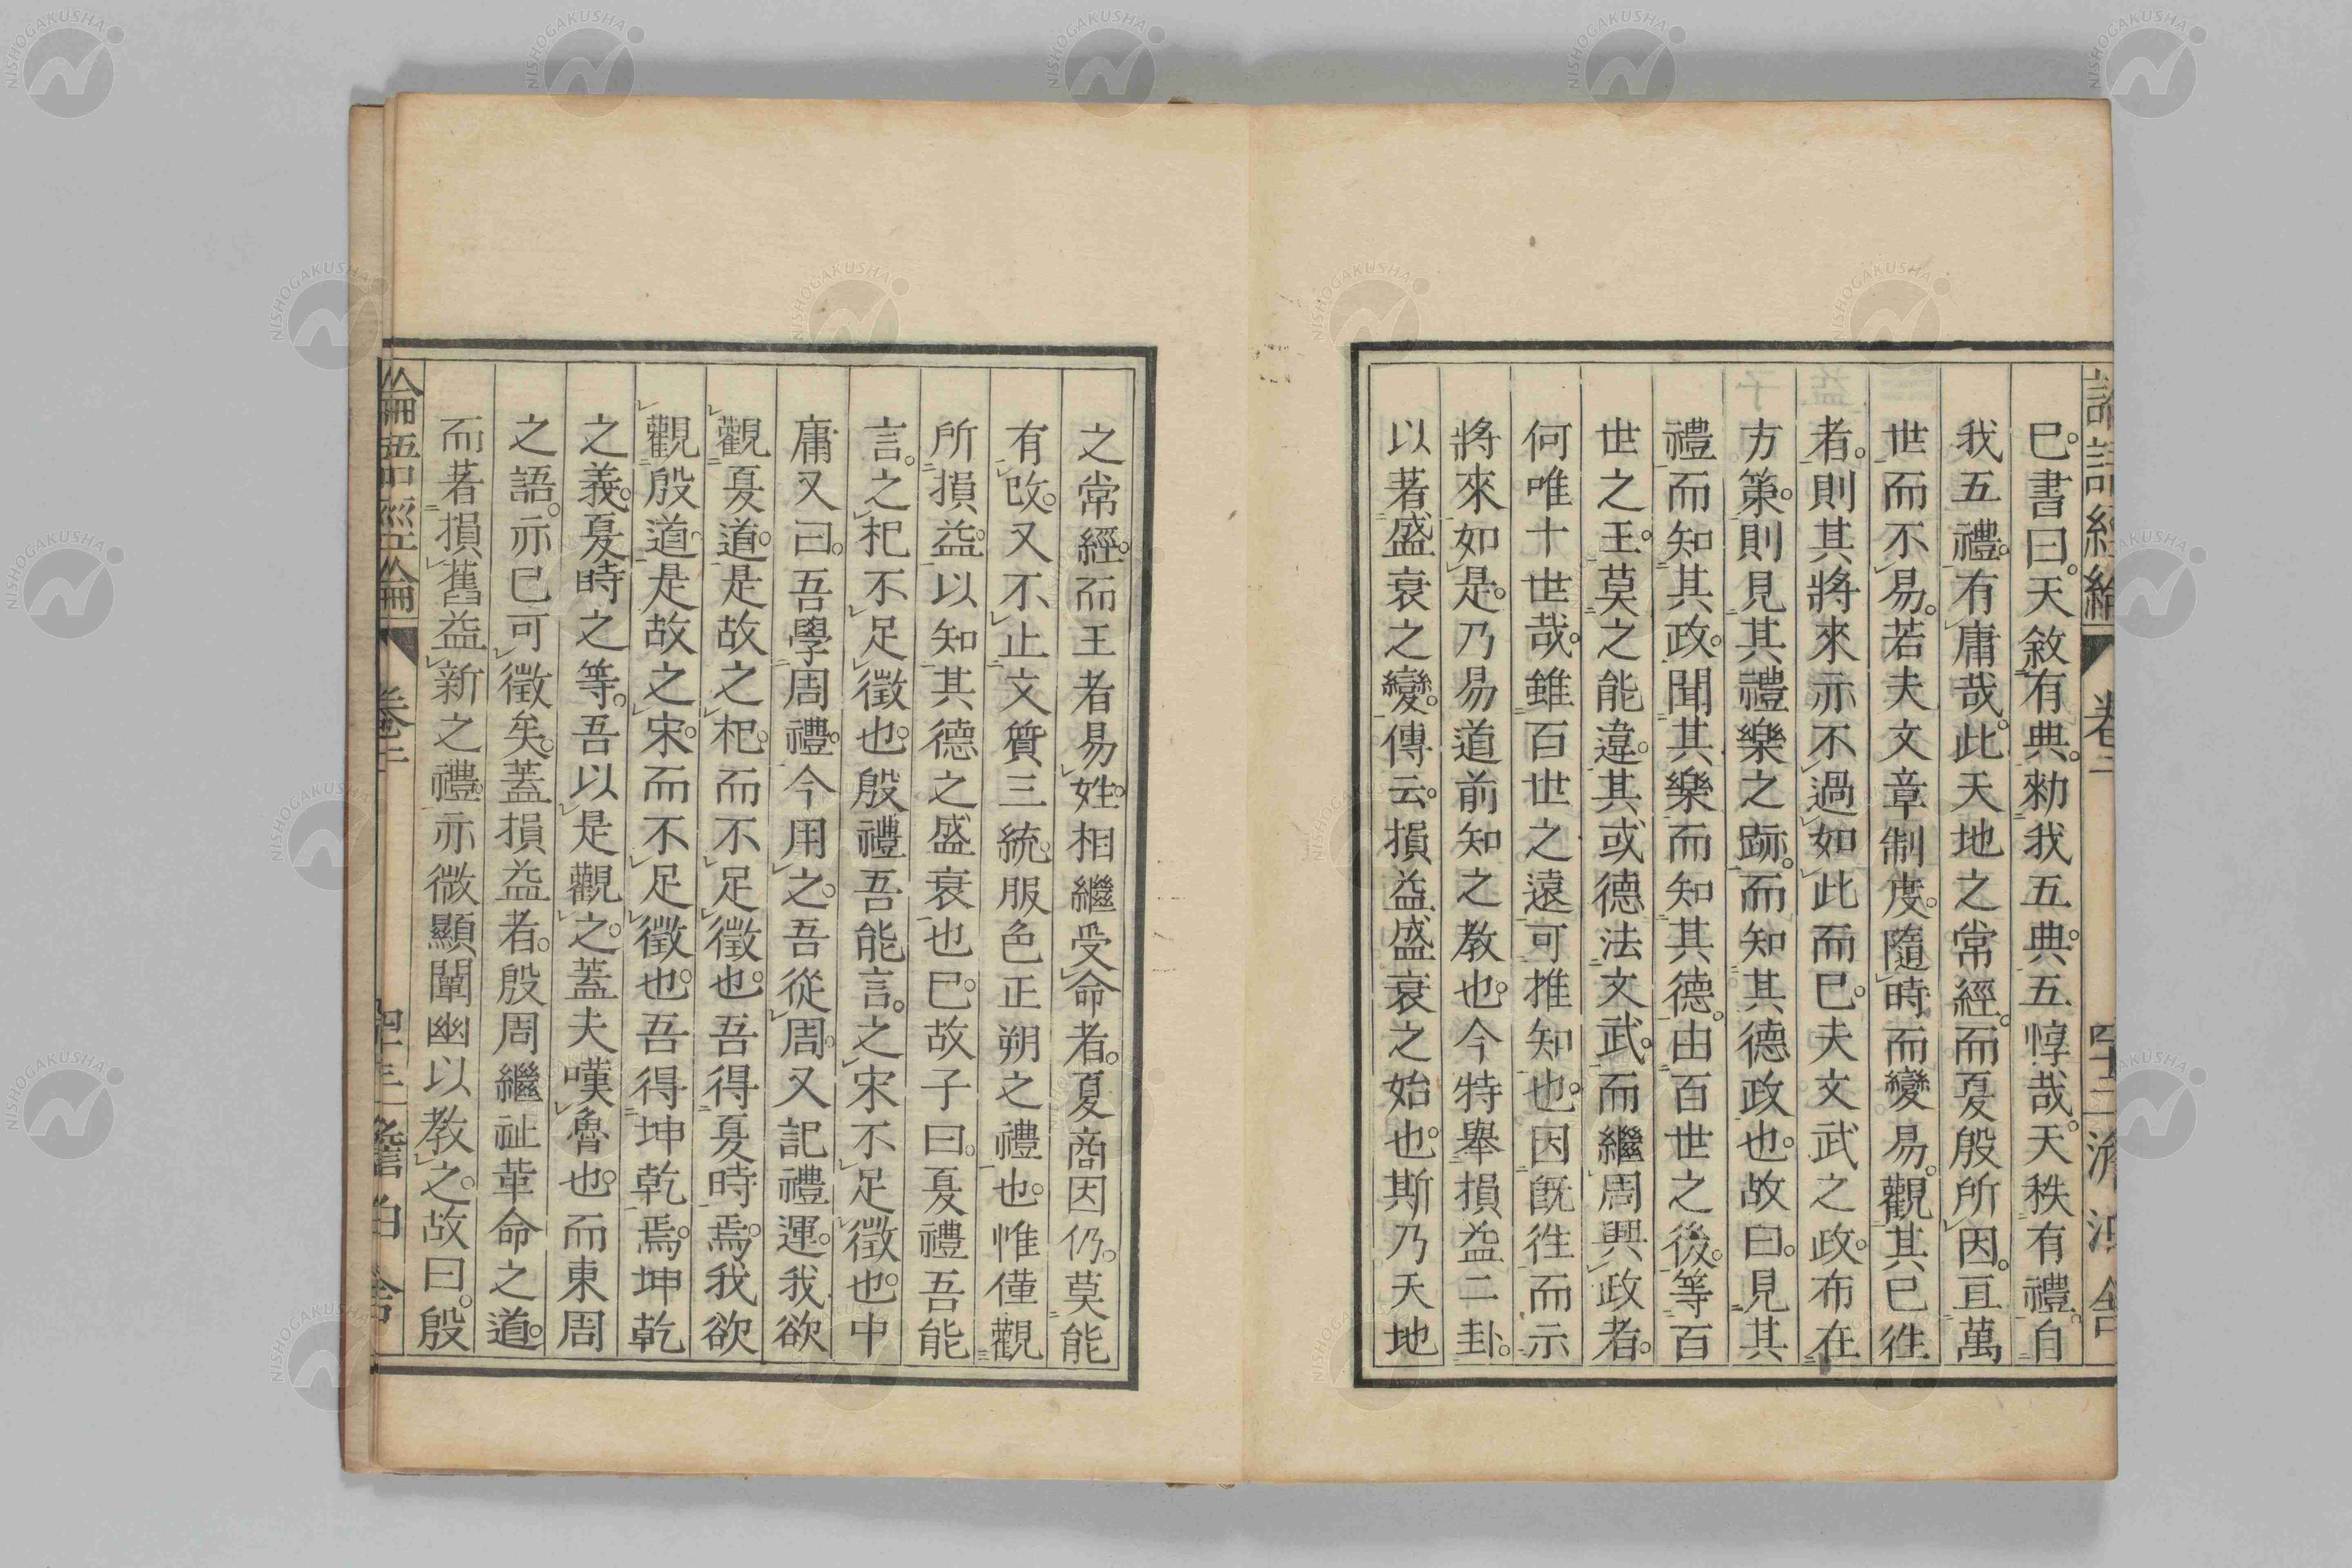 巳。書曰。天敘有典。勑我五典。五惇哉。天秩有禮。自
我五禮。有庸哉。此天地之常經。而夏殷所因。亘萬
世而不易。若夫文章制度。隨時而變易。觀其已徃
者。則其將來亦不過如此而巳。夫文武之政。布在
方策。則見其禮樂之跡。而知其德政也。故曰。見其
禮而知其政。聞其樂而知其德。由百世之後。等百
世之王。莫之能違。其或德法文武。而繼周興政者。
何唯十世哉。雖百世之遠可推知也。因旣徃而示
將來如是。乃易道前知之教也。今特舉損益二卦。
以著盛衰之變。傳云。損益盛衰之始也。斯乃天地
之常經。而王者易姓。相繼受命者。夏商因仍。莫能
有改。又不止文質三統。服色正朔之禮也。惟僅觀
所損益。以知其德之盛衰也巳。故子曰。夏禮吾能
言。之杞不足徵也。殷禮吾能言。之宋不足徵也。中
庸又曰。吾學周禮。今用之。吾從周。又記禮運。我欲
觀夏道。是故之杞。而不足徵也。吾得夏時焉。我欲
觀殷道。是故之宋。而不足徵也。吾得坤乾焉。坤乾
之義。夏時之等。吾以是觀之。蓋夫嘆魯也。而東周
之語。亦已可徵矣。蓋損益者。殷周繼祉革命之道。
而著損舊益新之禮。亦微顯闡幽以教之。故曰。殷
論語經綸 卷二